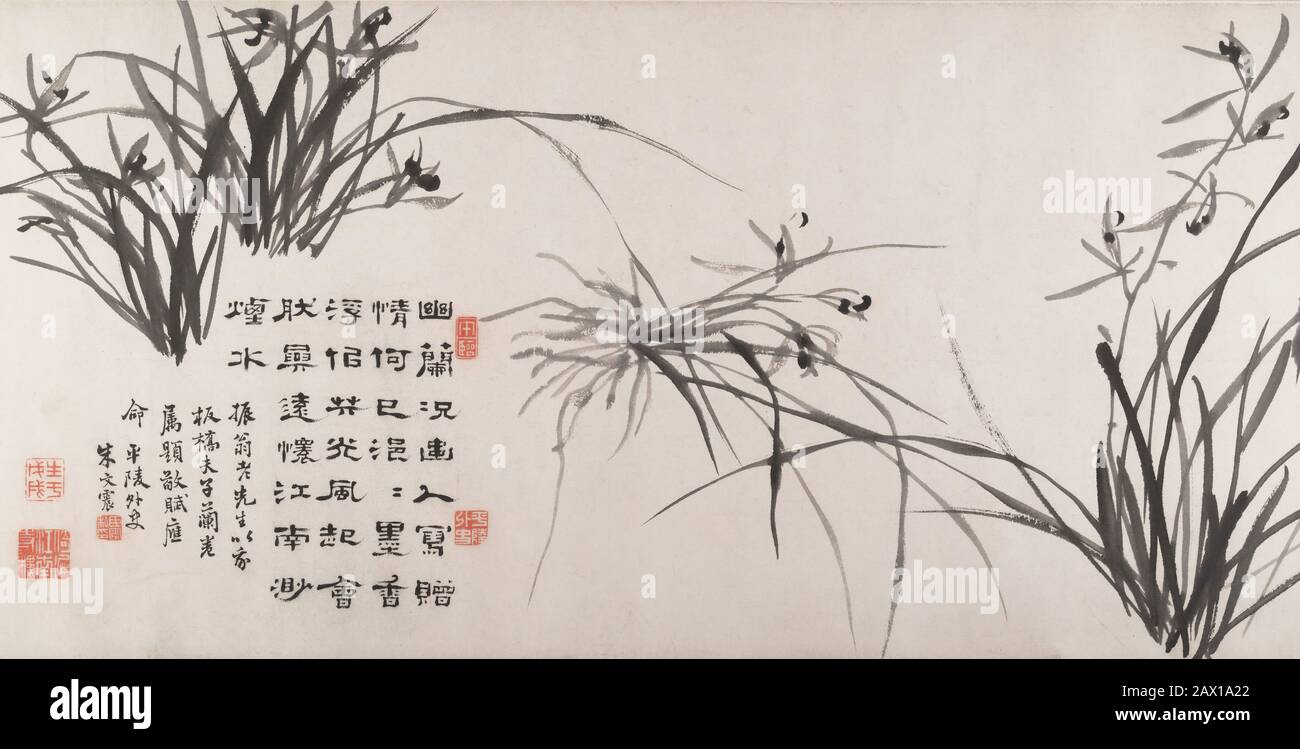 幽蘭況人寫贈
情何已浥〻墨香
浮佀共光風起會
肰興遠懷江南渺
煙水
振翁老先生以家
板橋夫子蘭卷
屬題敬賦應
命 平陵外史
朱文震
平陵外史
alamy
alamy
alamy
alamy
alamy
alamy
Image ID: 2AX1A22
www.alamy.com